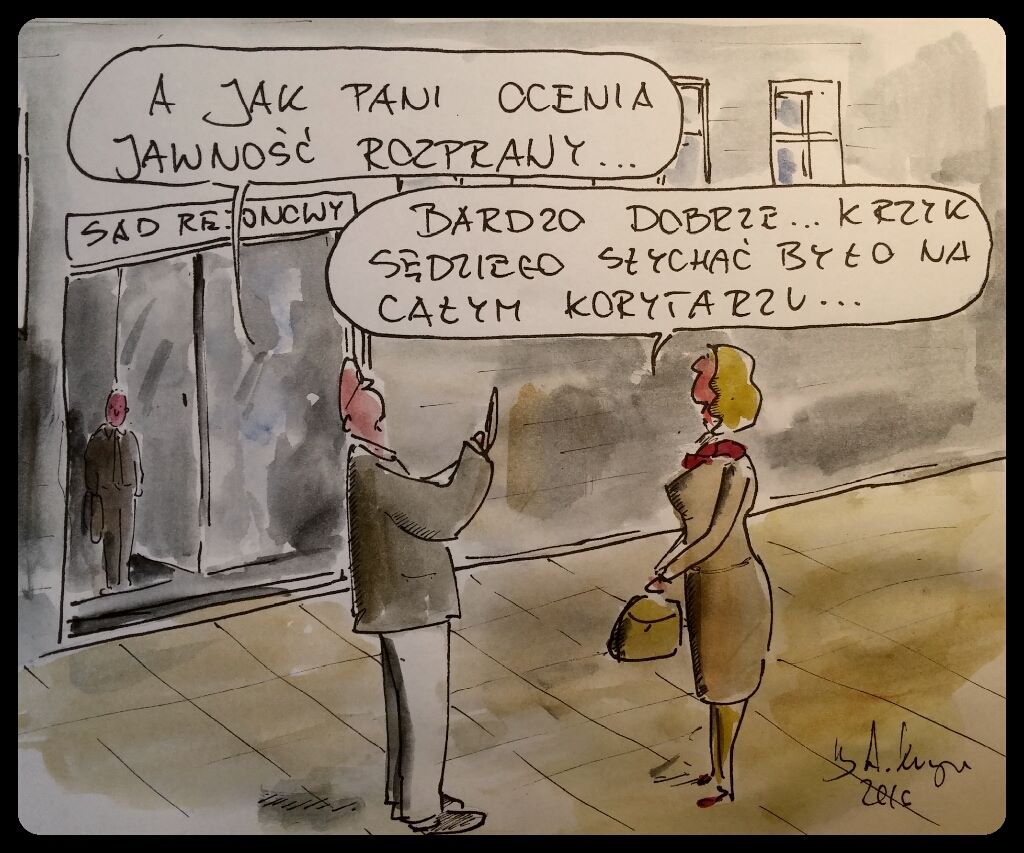 A JAK PANI OCENIA
JAWNOŚĆ ROZPRAWY...
SĄD REJONOWY
BARDZO DOBRZE... KRZYK
SĘDZIEGO SŁYCHAĆ BYŁO NA
CAŁYM KORYTARZU...
by A.
2016